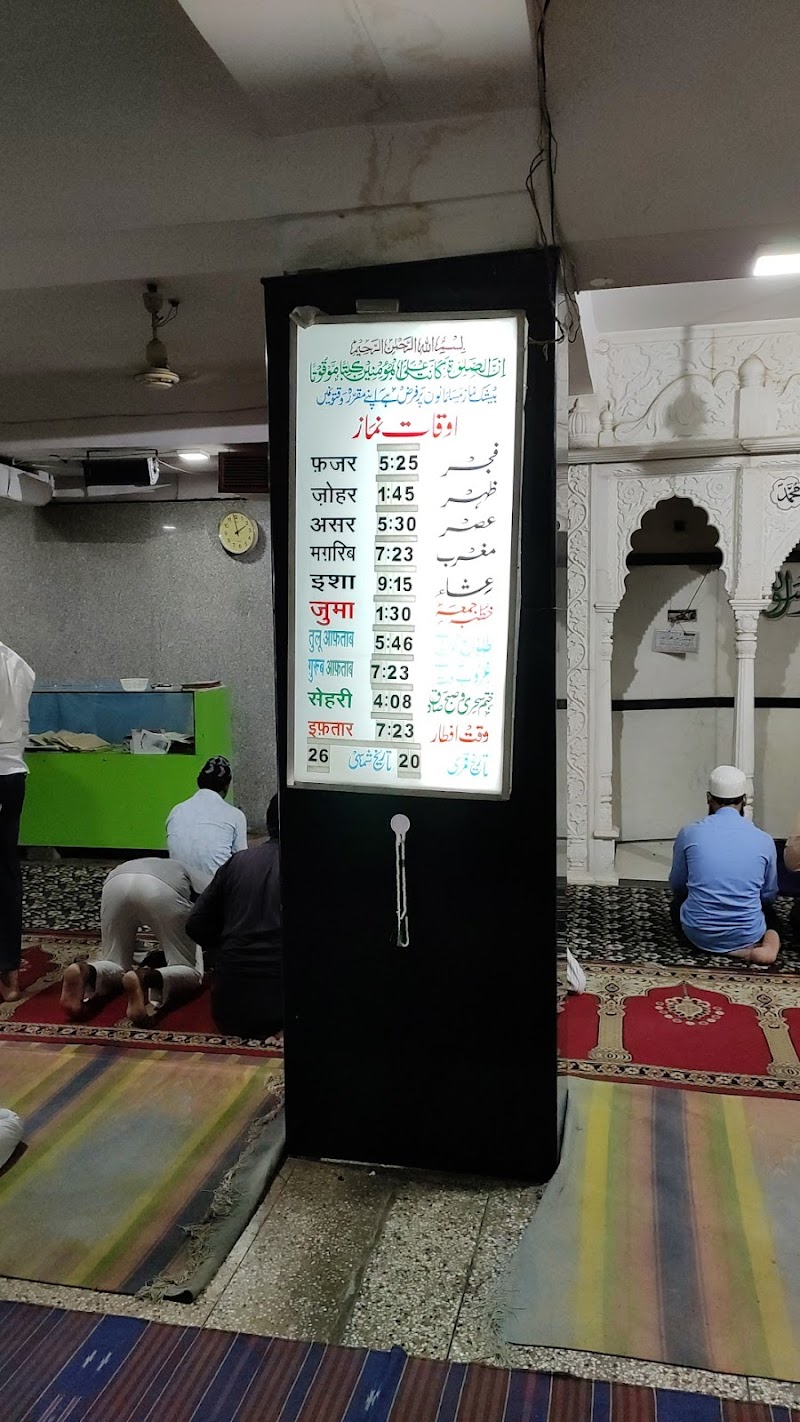 بسم اللہ الرحمن الرحیم
ان الصلوٰۃ کانت علی المؤمنین کتابا موقوتا
بیشک نماز مسلمانوں پر فرض ہے اپنے مقررہ وقتوں میں
اوقات نماز
फ़जर 5:25 فجر
ज़ोहर 1:45 ظہر
असर 5:30 عصر
मग़रिब 7:23 مغرب
इशा 9:15 عشاء
जुमा 1:30 خطبہ جمعہ
तुलू आफ़ताब 5:46 طلوع آفتاب
ग़ुरूब आफ़ताब 7:23 غروب آفتاب
सेहरी 4:08 ختم سحری و صبح صادق
इफ़्तार 7:23 وقت افطار
26 تاریخ شمسی 20 تاریخ قمری
محمد